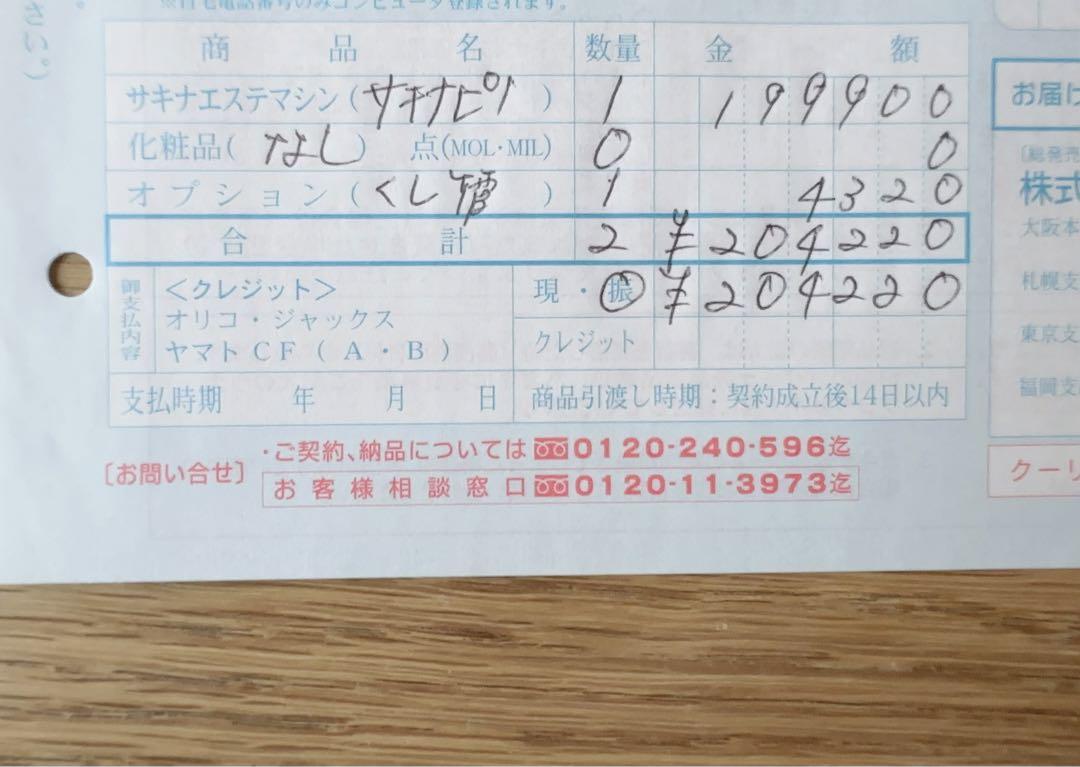 ※自宅電話番号のみコンピュータ登録されます。
さい。)
商品名 数量 金額
サキナエステマシン(サキナビツ) 1 199900
化粧品(なし) 点(MOL・MIL) 0 0
オプション(くし電) 1 4320
合計 2 ¥204220
御支払内容 <クレジット> 現・振 ¥204220
オリコ・ジャックス
ヤマトCF(A・B) クレジット
支払時期 年 月 日 商品引渡し時期:契約成立後14日以内
[お問い合せ] ・ご契約、納品については 0120-240-596迄
お客様相談窓口 0120-11-3973迄
お届け
株式
大阪本
札幌支
東京支
福岡支
クーリ